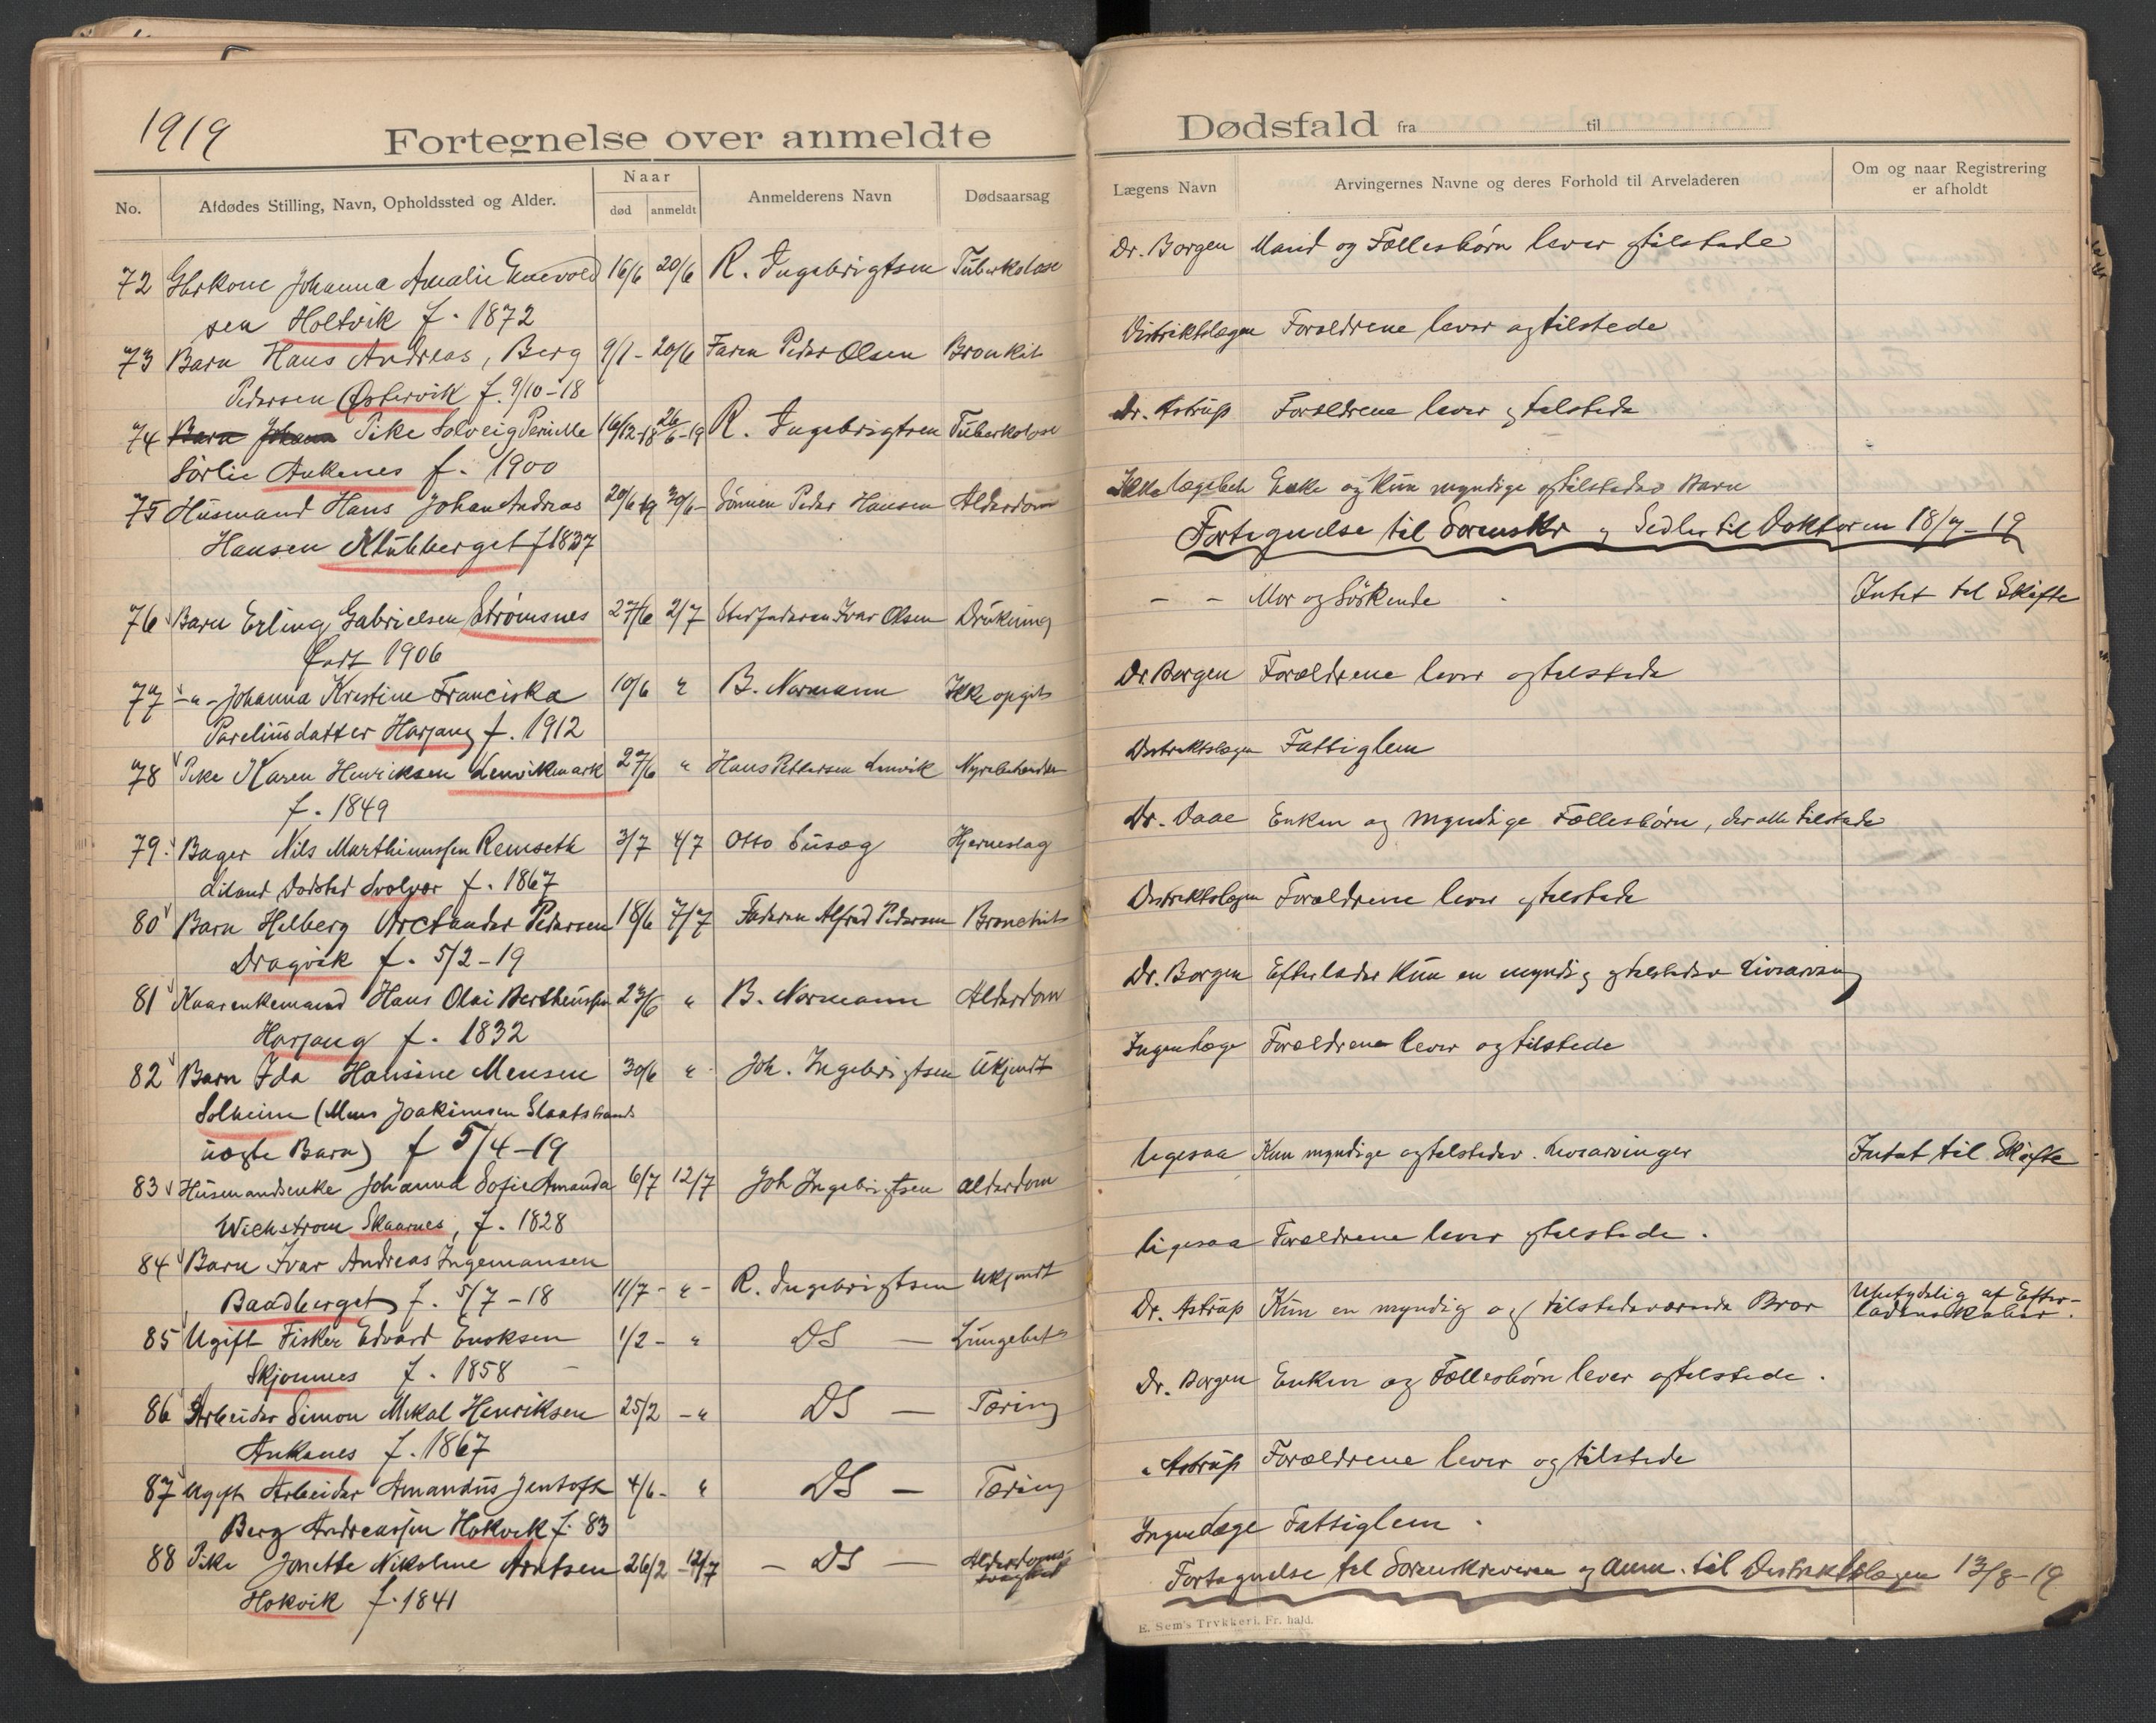 1919
Fortegnelse over anmeldte
No.
Afdødes Stilling, Navn, Opholdssted og Alder.
Naar
død
anmeldt
Anmelderens Navn
Dødsaarsag
72 Gbrkone Johanna Amalie Enevold 16/6 20/6 R. Ingebrigtsen Tuberkolose
sen Holtvik f. 1872
73 Barn Hans Andreas, Berg 9/1- 20/6 Faren Peder Olsen Bronkit
Pedersen Østervik f. 9/10-18
74 Barn Johan Pike Solveig Pernille 16/12-18 26/6-19 R. Ingebrigtsen Tuberkolose
Sørlie Ankenes f. 1900
75 Husmand Hans Johan Andreas 20/6 19 30/6- Sønnen Peder Hansen Alderdom
Hansen Klubberget f 1837
76 Barn Erling Gabrielsen Strømsnes 27/6 2/7 Stedfaderen Ivar Olsen Drukning
Født 1906
77 -"- Johanna Kristine Franciska 10/6 " B. Normann Ikke opgit
Pareliusdatter Harjang f. 1912
78 Pike Karen Henriksen Lenvikmark 27/6 " Hans Pettersen Lenvik
f. 1849
79 Bager Nils Marthinussen Remseth 3/7 4/7 Otto Susæg Hjerneslag
Liland Dødsted Svolvær f. 1867
80 Barn Helberg Arctander Pedersen 18/6 7/7 Faderen Alfred Pedersen Bronchit
Dragvik f. 5/2-19
81 Kaarenkemand Hans Olai Bertheussen 23/6 " B. Normann Alderdom
Harjang f. 1832
82 Barn Ida Hansine Mensen 30/6 " Joh. Ingebrigtsen Ukjendt
Solheim (Mens Joakimsen Slaatsbrands
uægte Barn) f 5/4-19
83 Husmandsenke Johanna Sofie Amanda 6/7 12/7 Joh Ingebrigtsen Alderdom
Wickstrom Skaarnes, f. 1828
84 Barn Ivar Andreas Ingemansen
Baadberget f. 5/7-18 11/7- "- R. Ingebrigtsen Ukjendt
85 Ugift Fisker Edvard Enoksen 1/2- " DS — Lungebet
Skjomnes f. 1858
86 Arbeider Simon Mikal Henriksen 25/2 -" DS — Tæring
Ankenes f. 1867
87 Ugift Arbeider Amandus Jentoft 4/6- " DS — Tæring
Berg Andreassen Hokvik f. 83
88 Pike Jonette Nikoline Arntsen 26/2 -12/7 — DS — Alderdoms-
svaghed
Hokvik f. 1841
Dødsfald fra til
Lægens Navn
Arvingernes Navne og deres Forhold til Arveladeren
Om og naar Registrering
er afholdt
Dr. Borgen Mand og Fællesbørn lever og tilstede
Distriktslægen Forældrene lever og tilstede
Dr. Astrup Forældrene lever og tilstede
Ikke lægebeh Enke og kun myndige og tilsteder Barn
Fortegnelse til Sorenskr og Sedler til Doktoren 18/7-19
- - Mor og Søskende Intet til Skifte
Dr Borgen Forældrene lever og tilstede
Distriktslægen Fattiglem
Dr. Daae Enken og myndige Fællesbørn, der alle tilstede
Distriktslægen Forældrene lever og tilstede
Dr. Borgen Efterlader kun en myndig og tilsteder Livsarving
Ingen Læge Forældrene lever og tilstede
Ligesaa Kun myndige og tilsteder. Livsarvinger Intet til Skifte
Ligesaa Forældrene lever og tilstede.
Dr. Astrup Kun en myndig og tilstedeværende Bror Ubetydelig af Efter-
ladenskaber.
Dr. Borgen Enken og Fællesbørn lever og tilstede.
" Astrup Forældrene lever og tilstede
Ingen Læge Fattiglem.
Fortegnelse til Sorenskriveren og Anm. til Distriktslægen 13/8-19
E. Sem's Trykkeri, Fr.hald.